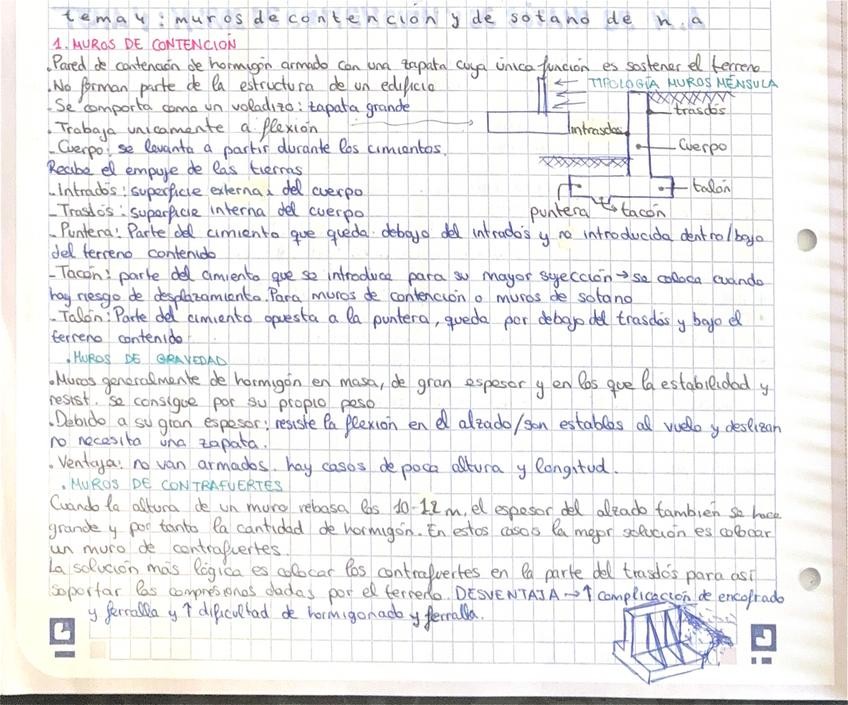 tema 4: muros de contención y de sótano de h.a
1. MUROS DE CONTENCIÓN
. Pared de contención de hormigón armado con una zapata cuya única función es sostener el terreno
. No forman parte de la estructura de un edificio
TIPOLOGÍA MUROS MÉNSULA
- Se comporta como un voladizo: zapata grande
trasdós
. Trabaja unicamente a flexión
intrasdos
- Cuerpo: se levanta a partir durante los cimientos.
Cuerpo
Recibe el empuje de las tierras
- Intradós: superficie externa del cuerpo
talón
- Trasdós: suparficie interna del cuerpo
puntera
tacón
- Puntera: Parte del cimiento que queda debajo del intradós y no introducida dentro/bajo
del terreno contenido
- Tacón: parte del cimiento que se introduce para su mayor syección → se coloca cuando
hay riesgo de desplazamiento. Para muros de contención o muros de sotano
- Talón: Parte del cimiento opuesta a la puntera, queda por debajo del trasdós y bajo el
terreno contenido.
. MUROS DE GRAVEDAD
. Muros generalmente de hormigón en masa, de gran espesor y en los que la estabilidad y
resist. se consigue por su propio peso
. Debido a su gran espesor: resiste la flexión en el alzado/son estables al vuelo y deslizan
no necesita una zapata.
. Ventaja: no van armados. hay casos de poca altura y longitud.
. MUROS DE CONTRAFUERTES
Cuando la altura de un muro rebasa los 10-12 m, el espesor del alzado también se hace
grande y por tanto la cantidad de hormigón. En estos casos la mejor solución es colocar
un muro de contrafuertes.
La solución más lógica es colocar los contrafuertes en la parte del trasdós para así
soportar las compresiones dadas por el terreno. DESVENTAJA → ↑ complicación de encofrado
y ferralla y ↑ dificultad de hormigonado y ferralla.